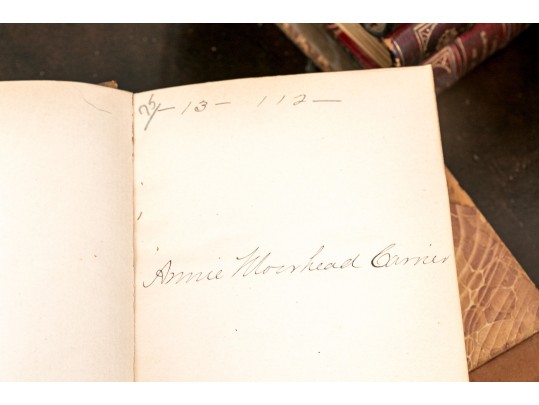 13 - 112 -
Annie Moorhead Carrier